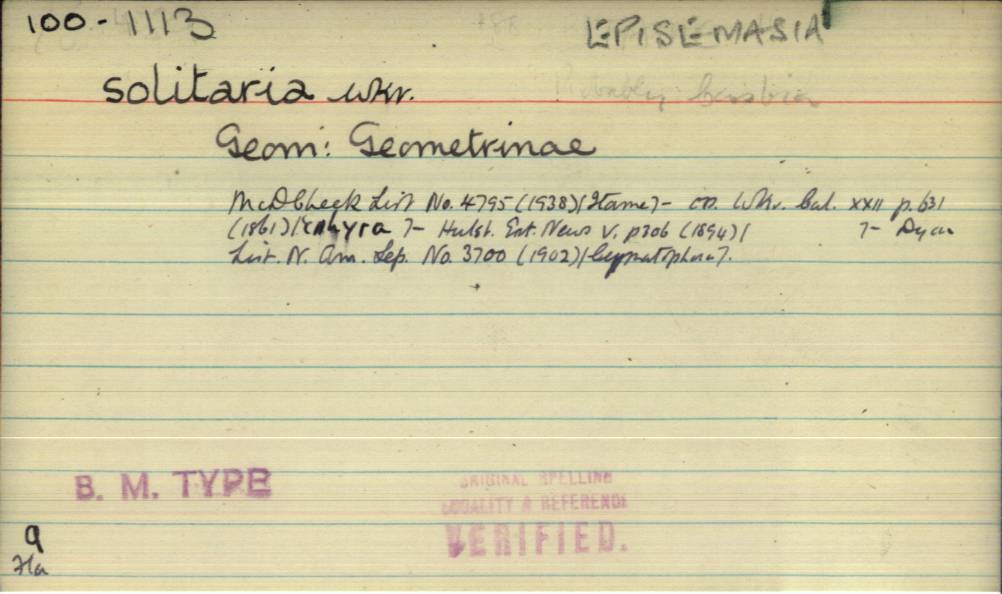 100-1113
EPISEMASIA
solitaria wkr.
Probably
Geom: Geometrinae
McD Check List No. 4795 (1938)[Itame]- on. Wkr. Cat. xxii p. 631
(1861)[ ]- Hulst. Ent. News V. p306 (1894)[ ]- Dyar
List. N. Am. Lep. No. 3700 (1902)[Cymatophora].
B. M. TYPE
ORIGINAL SPELLING
LOCALITY & REFERENCE
VERIFIED.
9
Fla